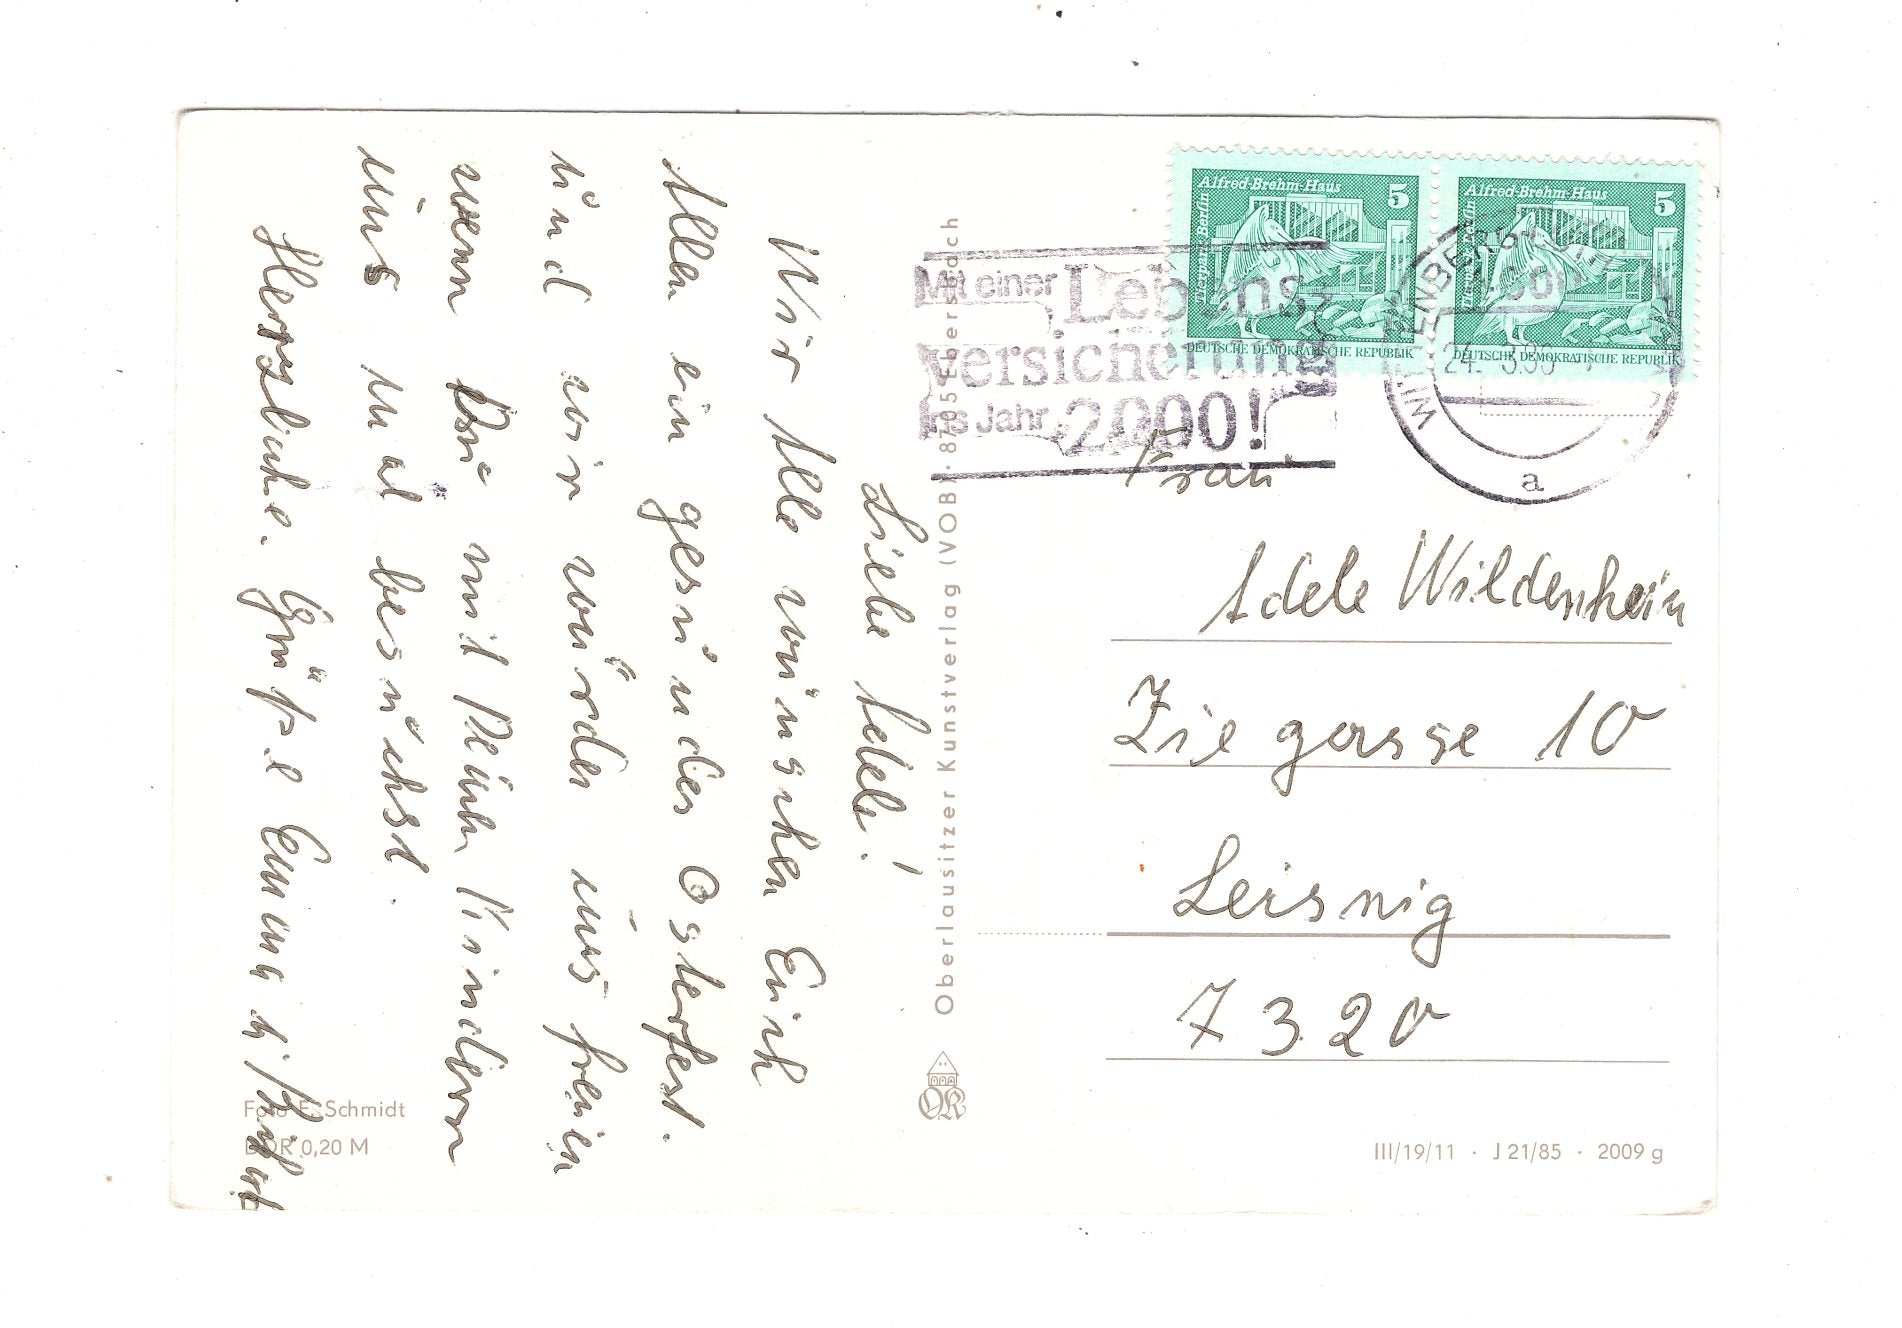 Liebe Adele!
Wir Alle wünschen Euch
Allen ein gesundes Osterfest.
und wir würden uns freuen
wenn Du mit Deinen Kindern
uns mal besuchst.
Herzliche Grüße Emma u.
Foto E. Schmidt
DDR 0,20 M
Oberlausitzer Kunstverlag (VOB) · 8705 Ebersbach
Mit einer Lebens
versicherung
ins Jahr 2000!
Alfred-Brehm-Haus 5
Tierpark Berlin
DEUTSCHE DEMOKRATISCHE REPUBLIK
Alfred-Brehm-Haus 5
Tierpark Berlin
DEUTSCHE DEMOKRATISCHE REPUBLIK
a
Frau
Adele Wildenhein
Ziegasse 10
Leisnig
7320
III/19/11 · J 21/85 · 2009 g